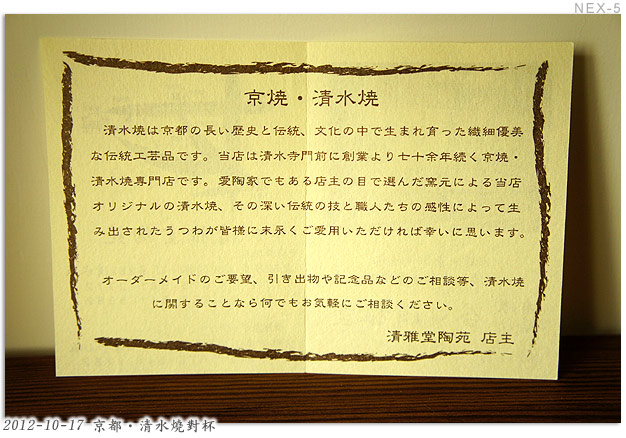 NEX-5
京焼・清水焼
清水焼は京都の長い歴史と伝統、文化の中で生まれ育った繊細優美
な伝統工芸品です。当店は清水寺門前に創業より七十余年続く京焼・
清水焼専門店です。愛陶家でもある店主の目で選んだ窯元による当店
オリジナルの清水焼、その深い伝統の技と職人たちの感性によって生
み出されたうつわが皆様に末永くご愛用いただければ幸いに思います。
オーダーメイドのご要望、引き出物や記念品などのご相談等、清水焼
に関することなら何でもお気軽にご相談ください。
清雅堂陶苑 店主
2012-10-17 京都・清水燒對杯